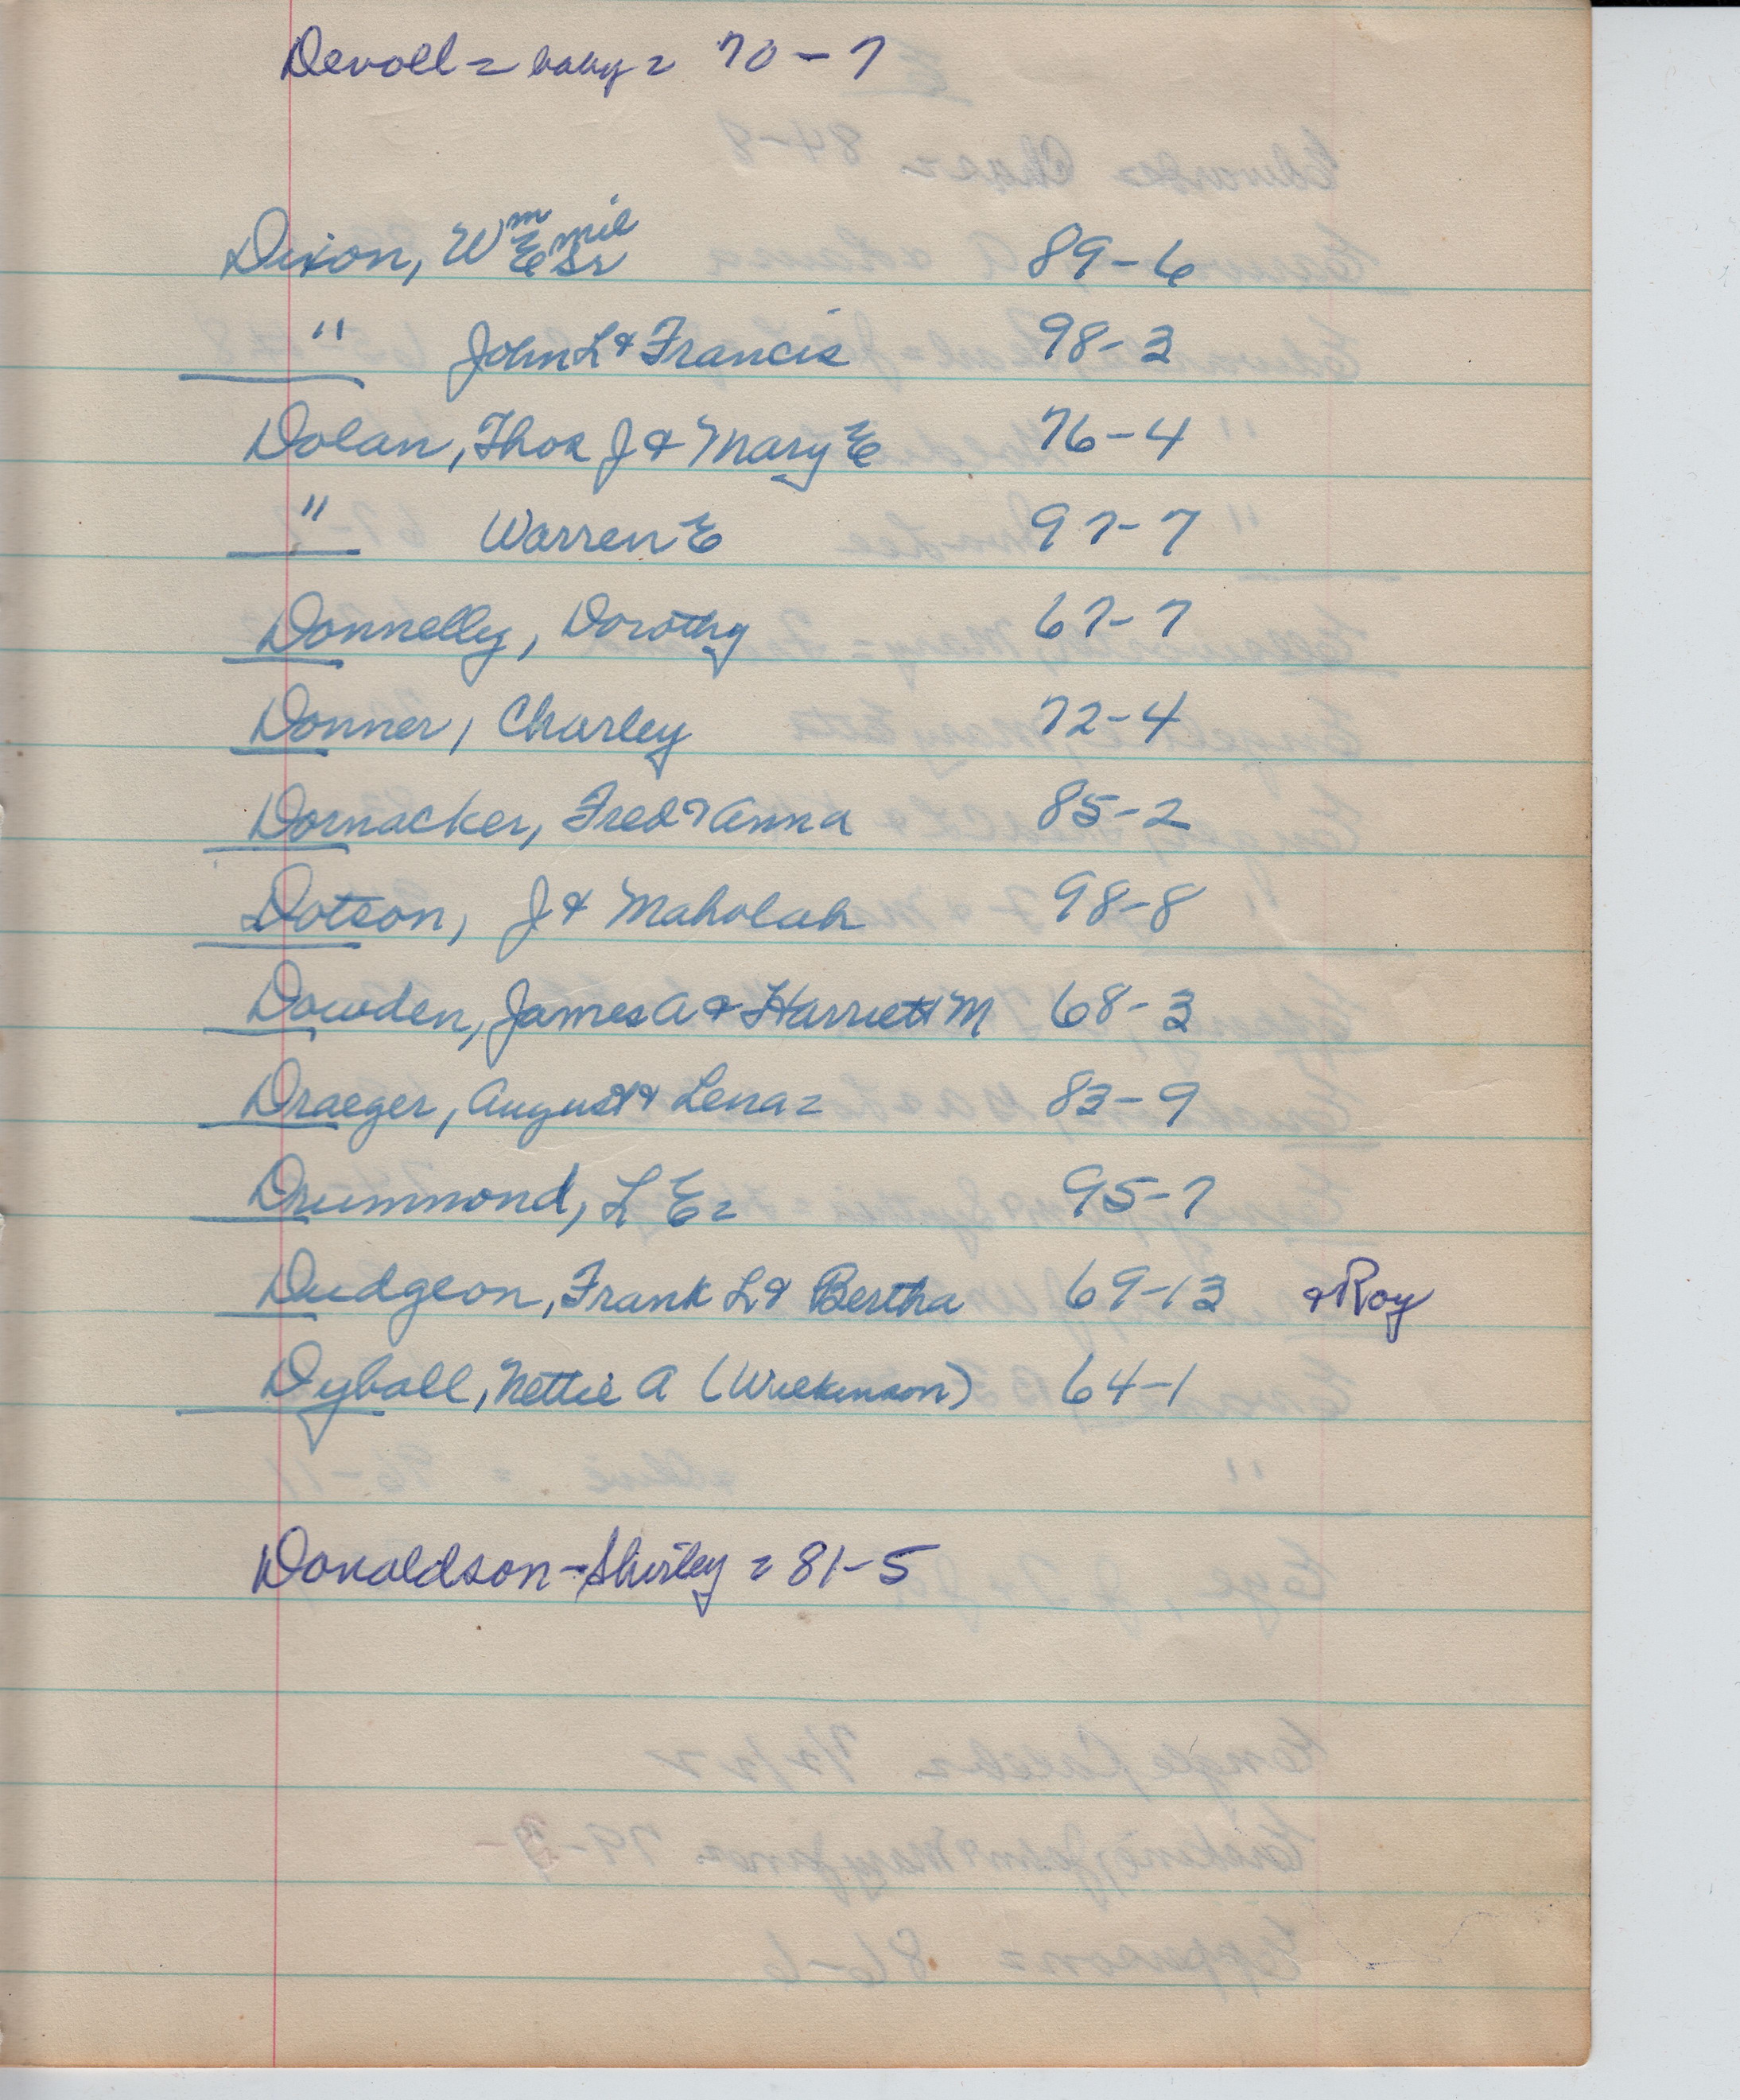 Devoll = baby = 70-7
Dixon, Wm Emil Sr 89-6
" John L & Francis 98-3
Dolan, Thos J & Mary E 76-4
" Warren E 97-7
Donnelly, Dorothy 67-7
Donner, Charley 72-4
Dornacker, Fred & Anna 85-2
Dotson, J & Maholah 98-8
Dowden, James A & Harriett M 68-3
Draeger, August & Lena = 83-9
Drummond, L E = 95-7
Dudgeon, Frank L & Bertha 69-13 & Roy
Dyball, Nettie A (Wilkinson) 64-1
Donaldson - Shirley = 81-5